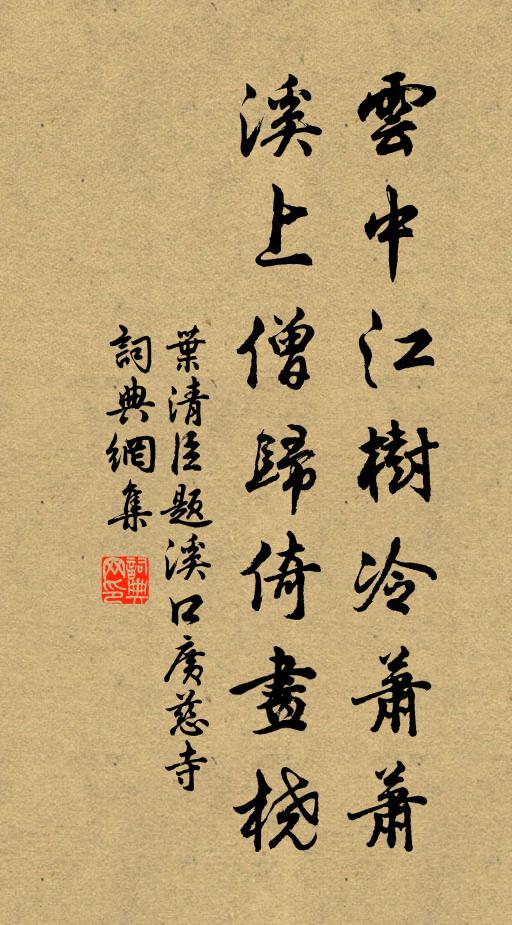 雲中江樹冷蕭蕭
溪上僧歸倚畫桡
葉清臣題溪口廣慈寺
詞典網集
詞典网印